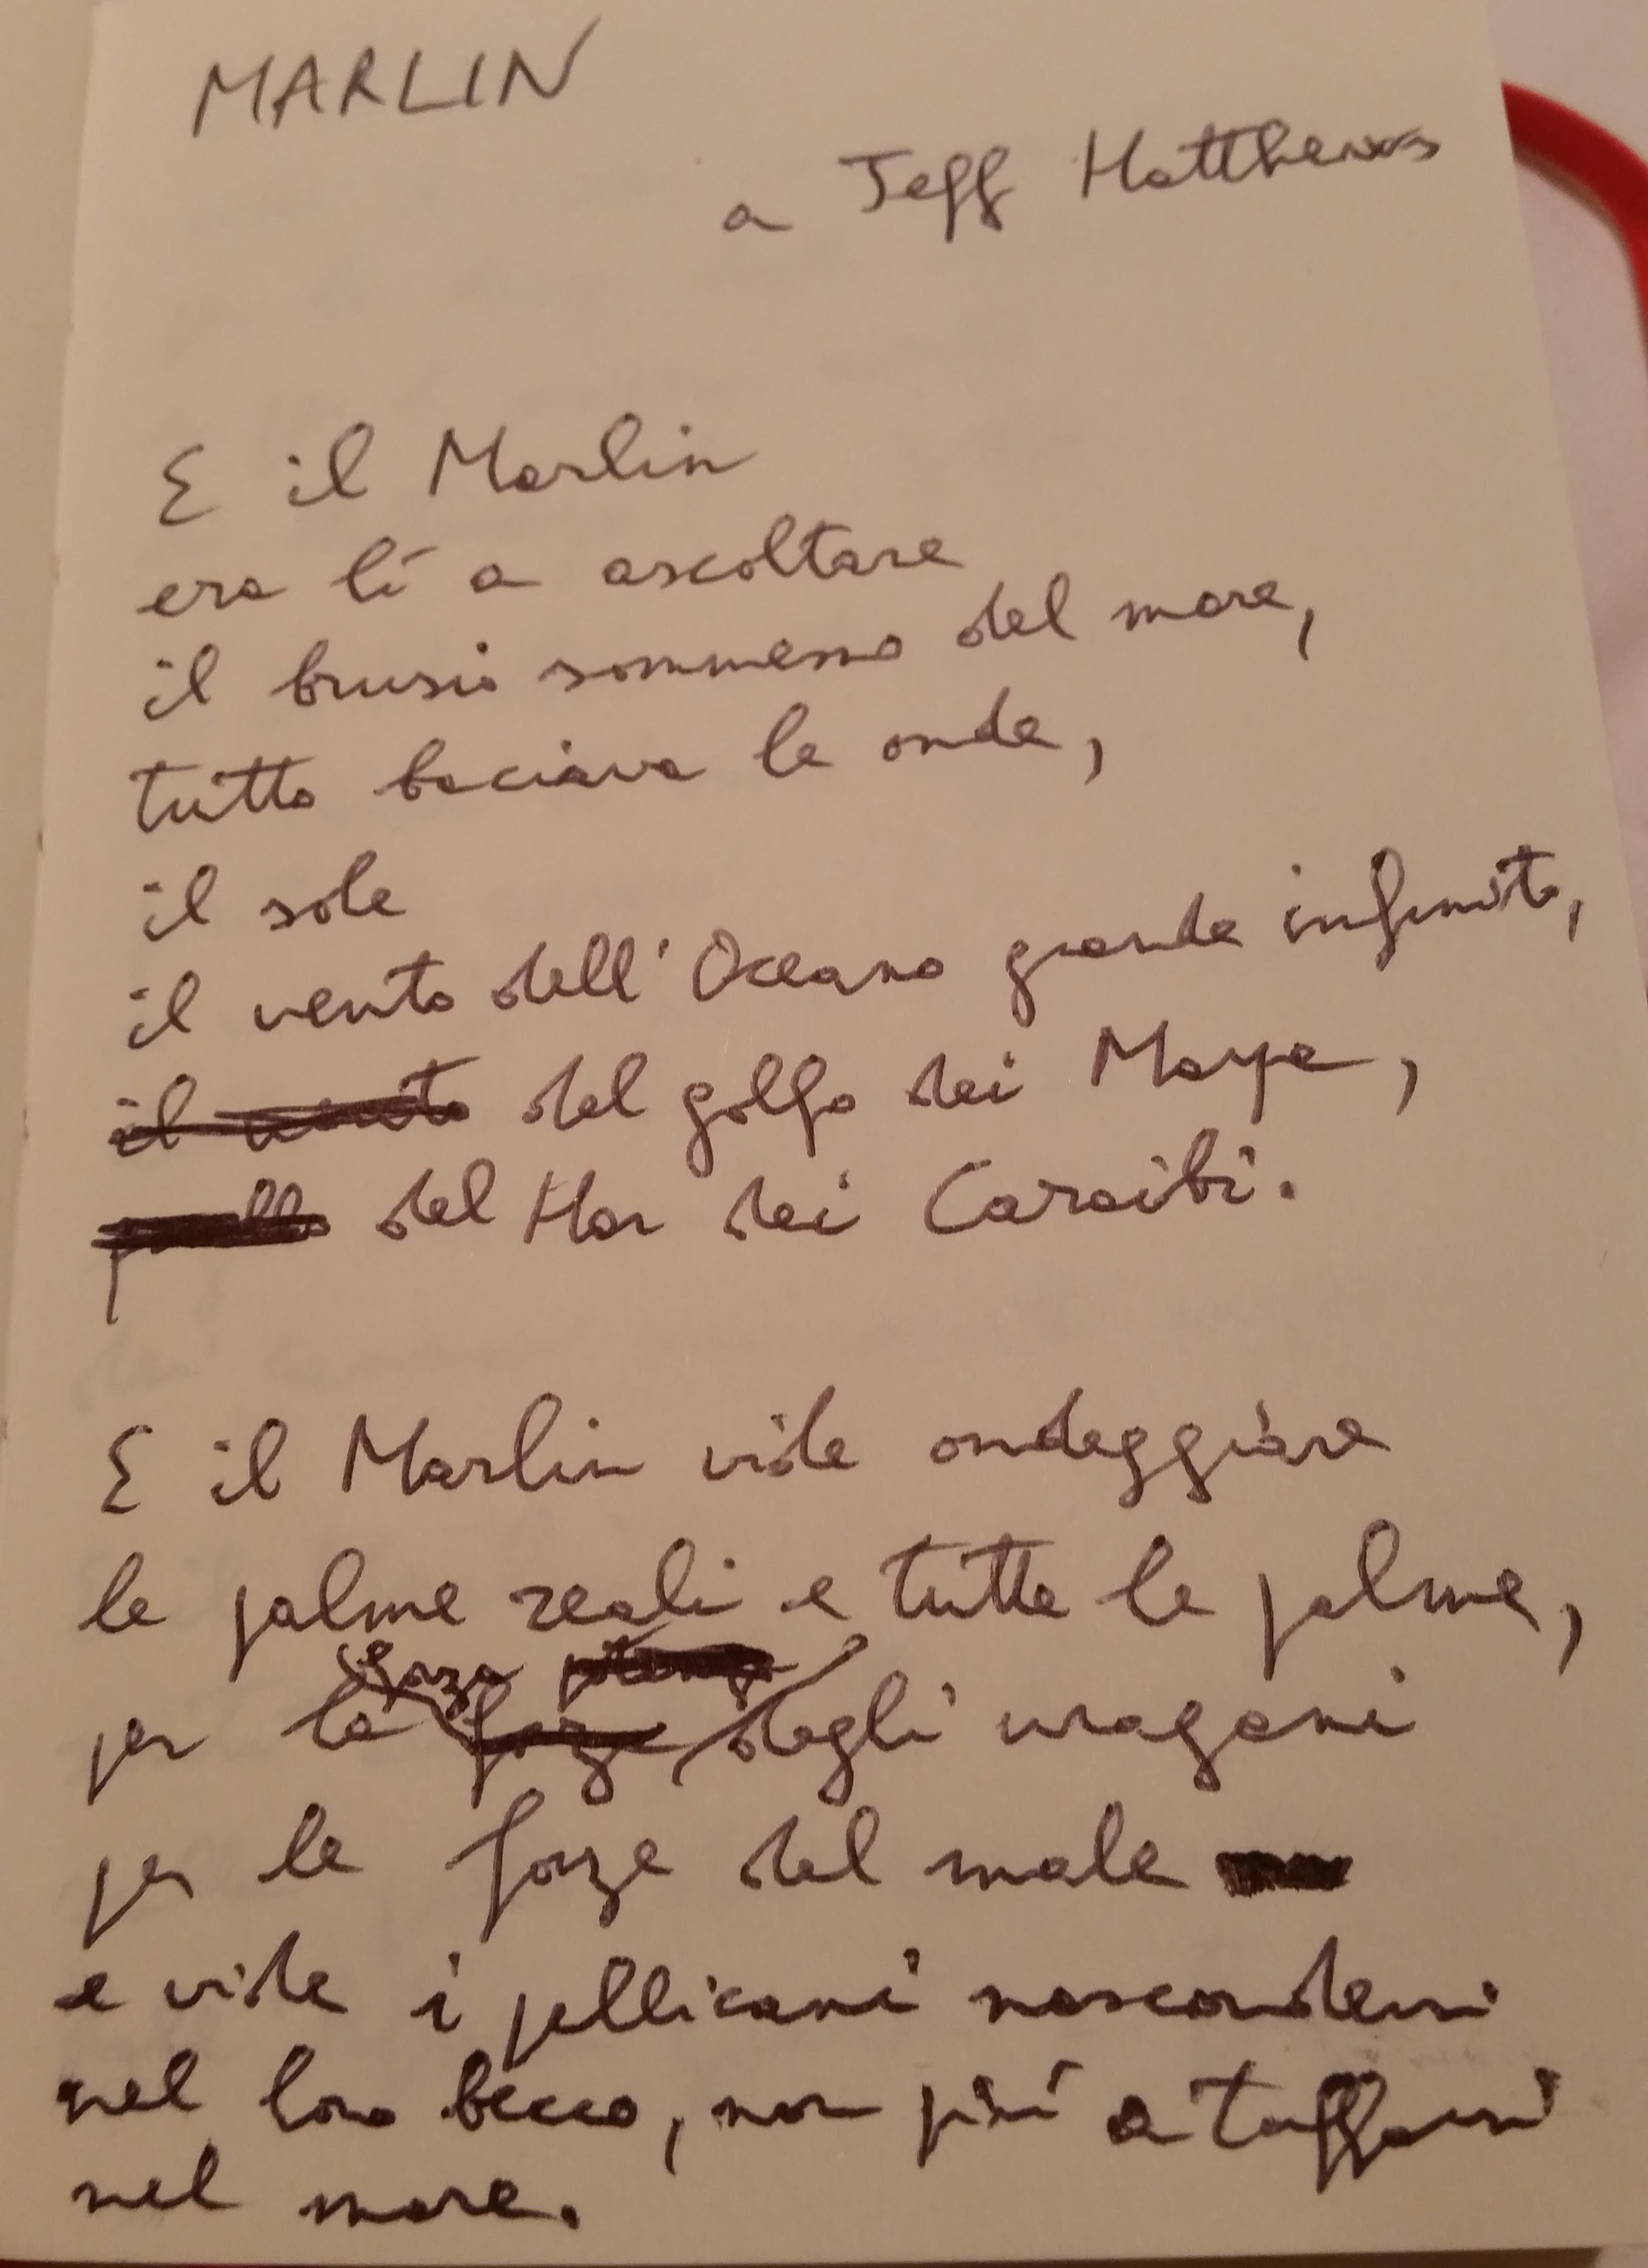 MARLIN
a Jeff Matthews
E il Marlin
era lí a ascoltare
il brusio sommesso del mare,
tutto baciava le onde,
il sole
il vento dell'Oceano grande infinito,
il vento del golfo dei Maya,
quello del Mar dei Caraibi.
E il Marlin vide ondeggiare
le palme reali e tutte le palme,
forza
per la forza degli uragani
per le forze del male
e vide i pellicani nascondersi
nel loro becco, non piú a tuffarsi
nel mare.